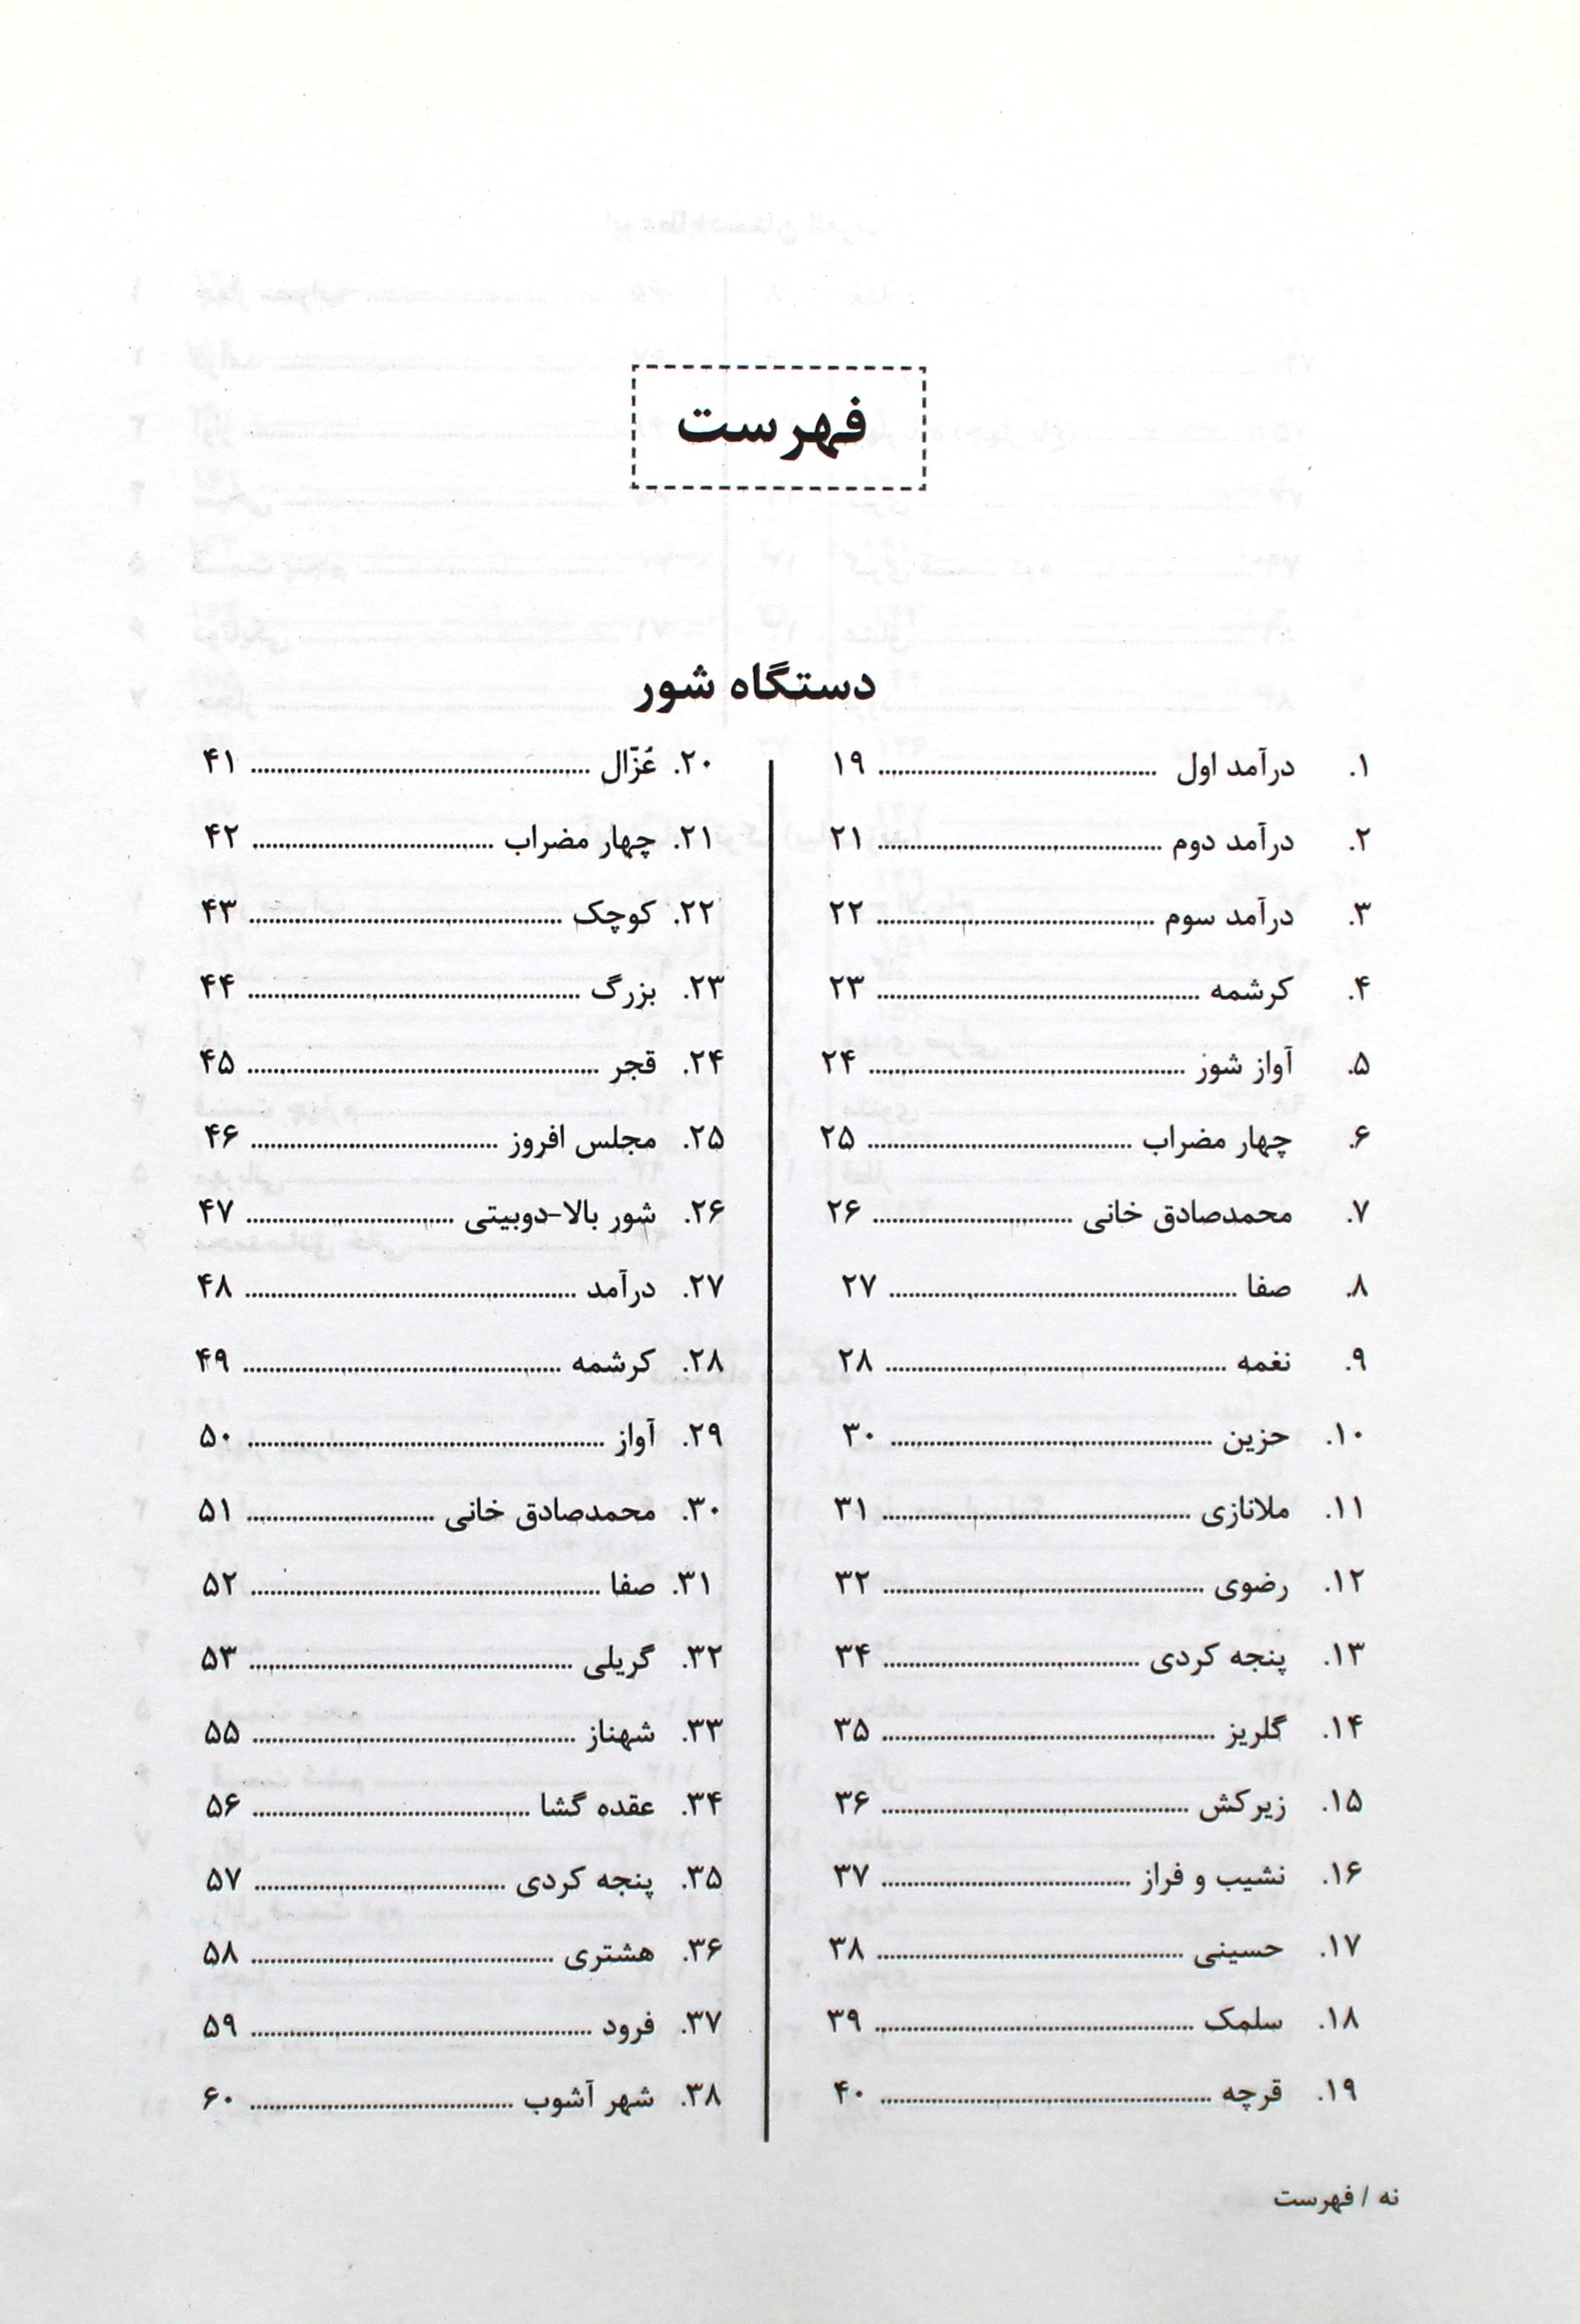 فهرست
دستگاه شور
۱. درآمد اول ........ ۱۹
۲. درآمد دوم ........ ۲۱
۳. درآمد سوم ........ ۲۲
۴. کرشمه ........ ۲۳
۵. آواز شوز ........ ۲۴
۶. چهار مضراب ........ ۲۵
۷. محمدصادق خانی ........ ۲۶
۸. صفا ........ ۲۷
۹. نغمه ........ ۲۸
۱۰. حزین ........ ۳۰
۱۱. ملانازی ........ ۳۱
۱۲. رضوی ........ ۳۲
۱۳. پنجه کردی ........ ۳۴
۱۴. گلریز ........ ۳۵
۱۵. زیرکش ........ ۳۶
۱۶. نشیب و فراز ........ ۳۷
۱۷. حسینی ........ ۳۸
۱۸. سلمک ........ ۳۹
۱۹. قرچه ........ ۴۰
۲۰. غُزّال ........ ۴۱
۲۱. چهار مضراب ........ ۴۲
۲۲. کوچک ........ ۴۳
۲۳. بزرگ ........ ۴۴
۲۴. قجر ........ ۴۵
۲۵. مجلس افروز ........ ۴۶
۲۶. شور بالا-دوبیتی ........ ۴۷
۲۷. درآمد ........ ۴۸
۲۸. کرشمه ........ ۴۹
۲۹. آواز ........ ۵۰
۳۰. محمدصادق خانی ........ ۵۱
۳۱. صفا ........ ۵۲
۳۲. گریلی ........ ۵۳
۳۳. شهناز ........ ۵۵
۳۴. عقده گشا ........ ۵۶
۳۵. پنجه کردی ........ ۵۷
۳۶. هشتری ........ ۵۸
۳۷. فرود ........ ۵۹
۳۸. شهر آشوب ........ ۶۰
نه / فهرست